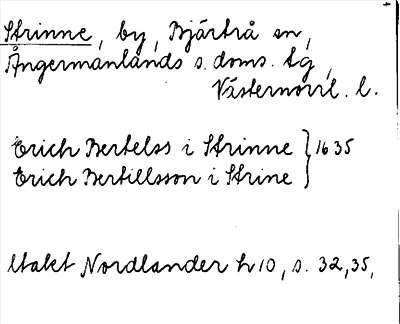 Strinne, by, Bjärtrå sn,
Ångermanlands s. doms. tg,
Västernorrl. l.
Erich Bertelss i Strinne } 1635
Erich Bertillsson i Strine
Utakt Nordlander h 10, s. 32, 35,